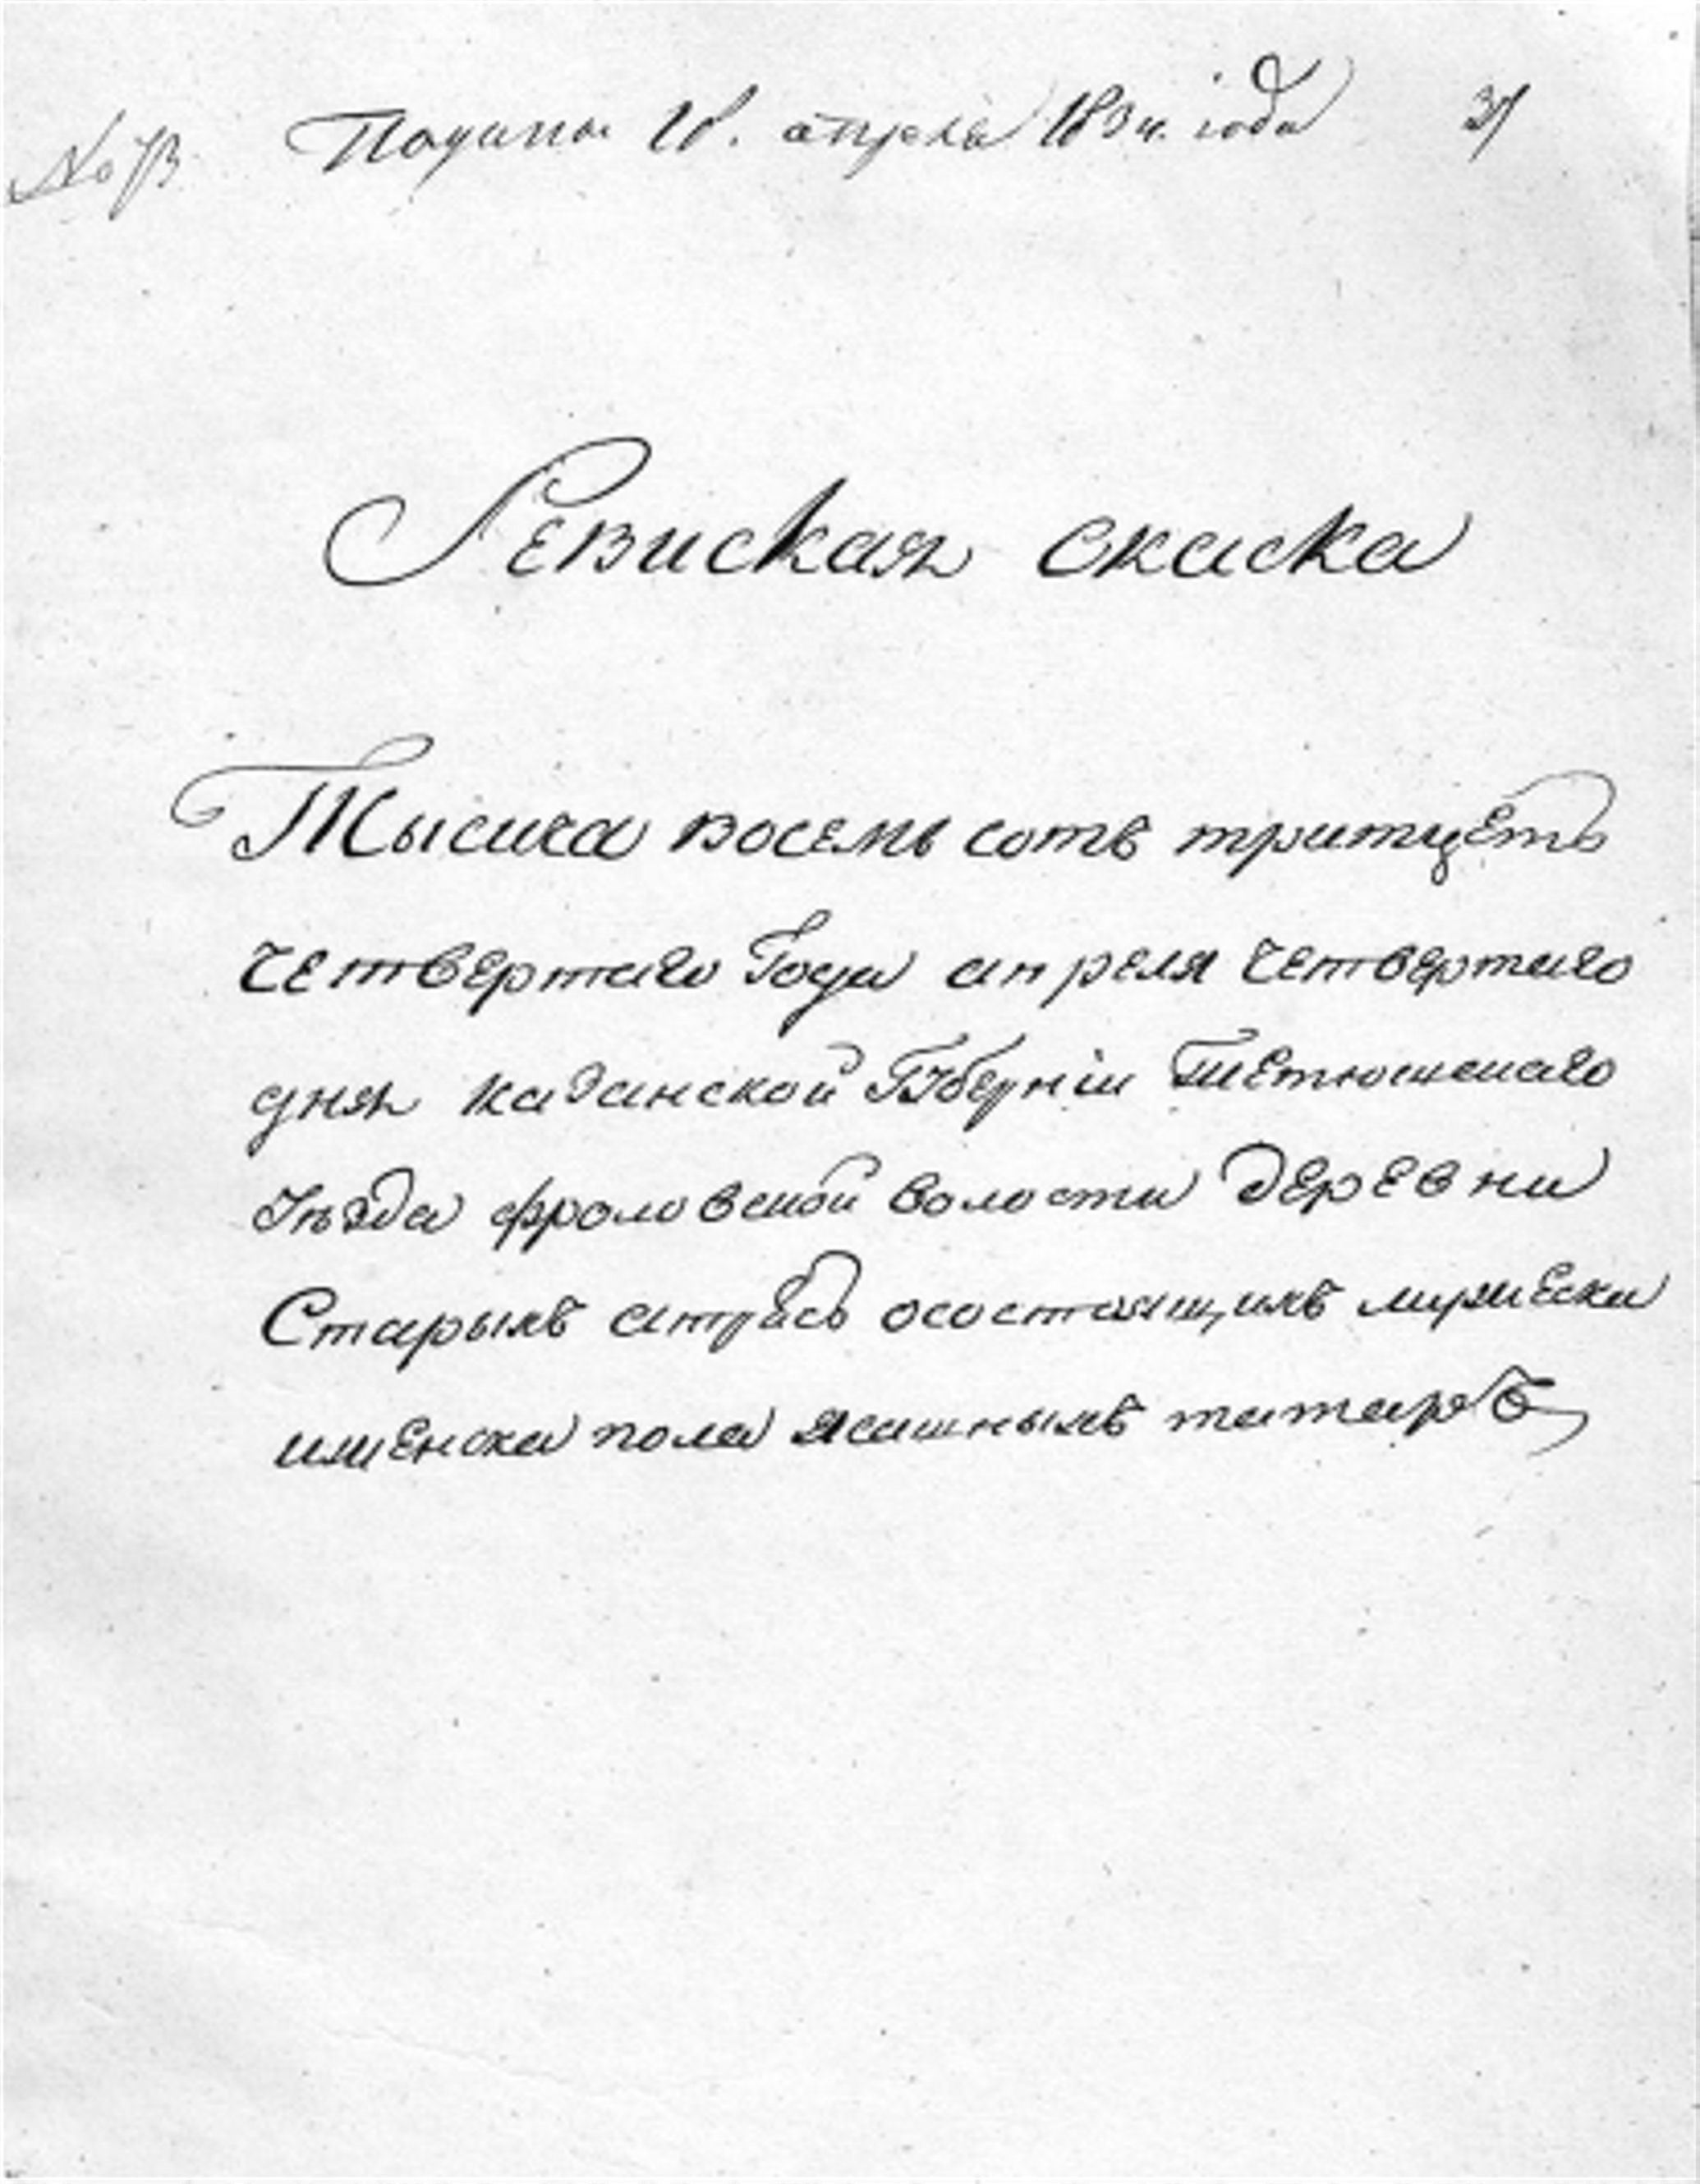 Подана 18. апреля 1834. года
Ревиская скаска
Тысяча восемь сотъ тритцеть
четвертаго Года апреля четвертаго
дня казанской Губерніи Тетюшскаго
Уѣзда фроловской волости деревни
Старыхъ атрясь осостаящихъ мужеска
иженска пола ясашныхъ татаръ